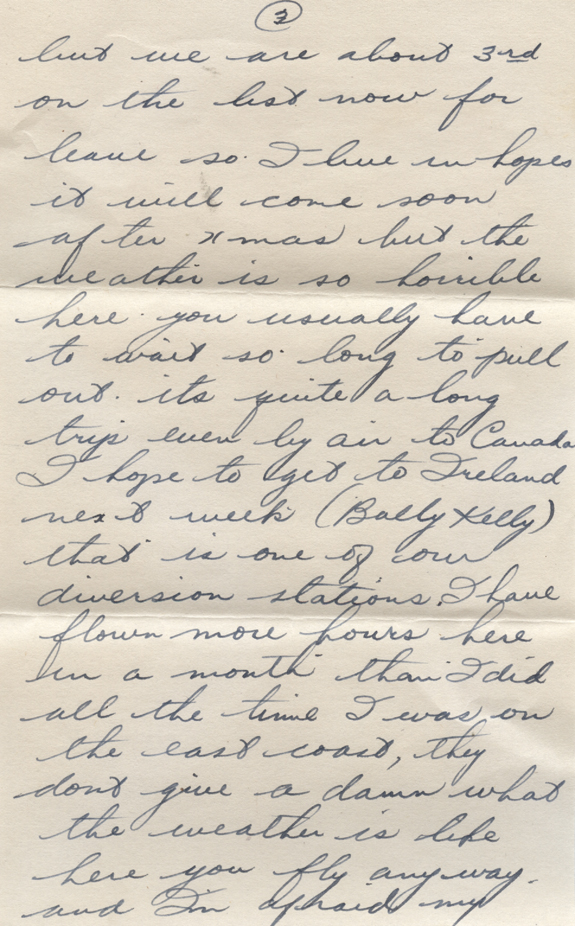 3
but we are about 3rd
on the list now for
leave so. I live in hopes
it will come soon
after xmas but the
weather is so horrible
here. you usually have
to wait so. long to pull
out. its quite a long
trip even by air to Canada
I hope to get to Ireland
next week (Bally Kelly)
that is one of our
diversion stations. I have
flown more hours here
in a month than I did
all the time I was on
the east coast, they
dont give a damn what
the weather is like
here you fly anyway.
and I'm afraid my